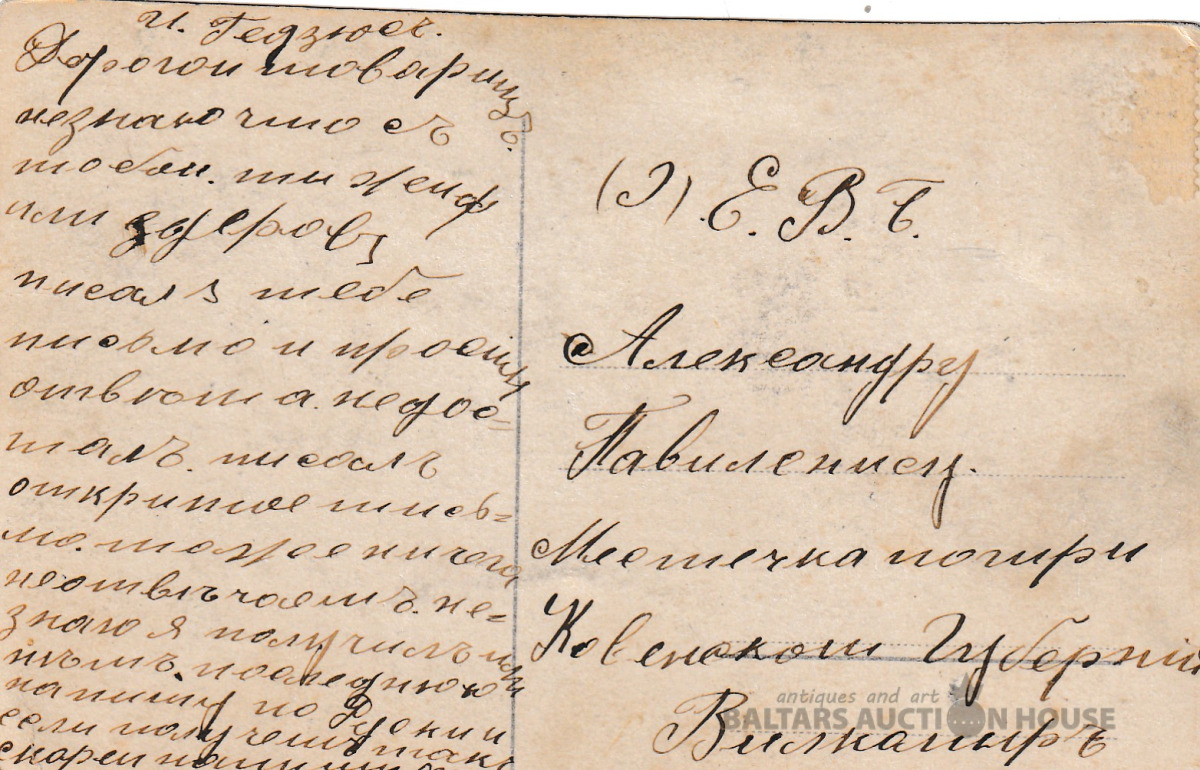 И. Гедзюсъ.
Дорогои товарищъ.
незнаю что съ
тобои. ты женф
или здеровъ
писалъ тебе
письмо и просилъ
отвѣта. недос=
талъ. писалъ
откритое пись=
мо. тоже ничего
неотвѣчаетъ. не=
знаю я получилъ или
нѣтъ. последнюю
напишу по Руски и
если получешъ такъ
скареи напиши
(Э) Е. В. Б.
Александру
Павиленису.
Местечка погири
Ковенскои Губерніи
Вилкамиръ
antiques and art
BALTARS AUCTION HOUSE